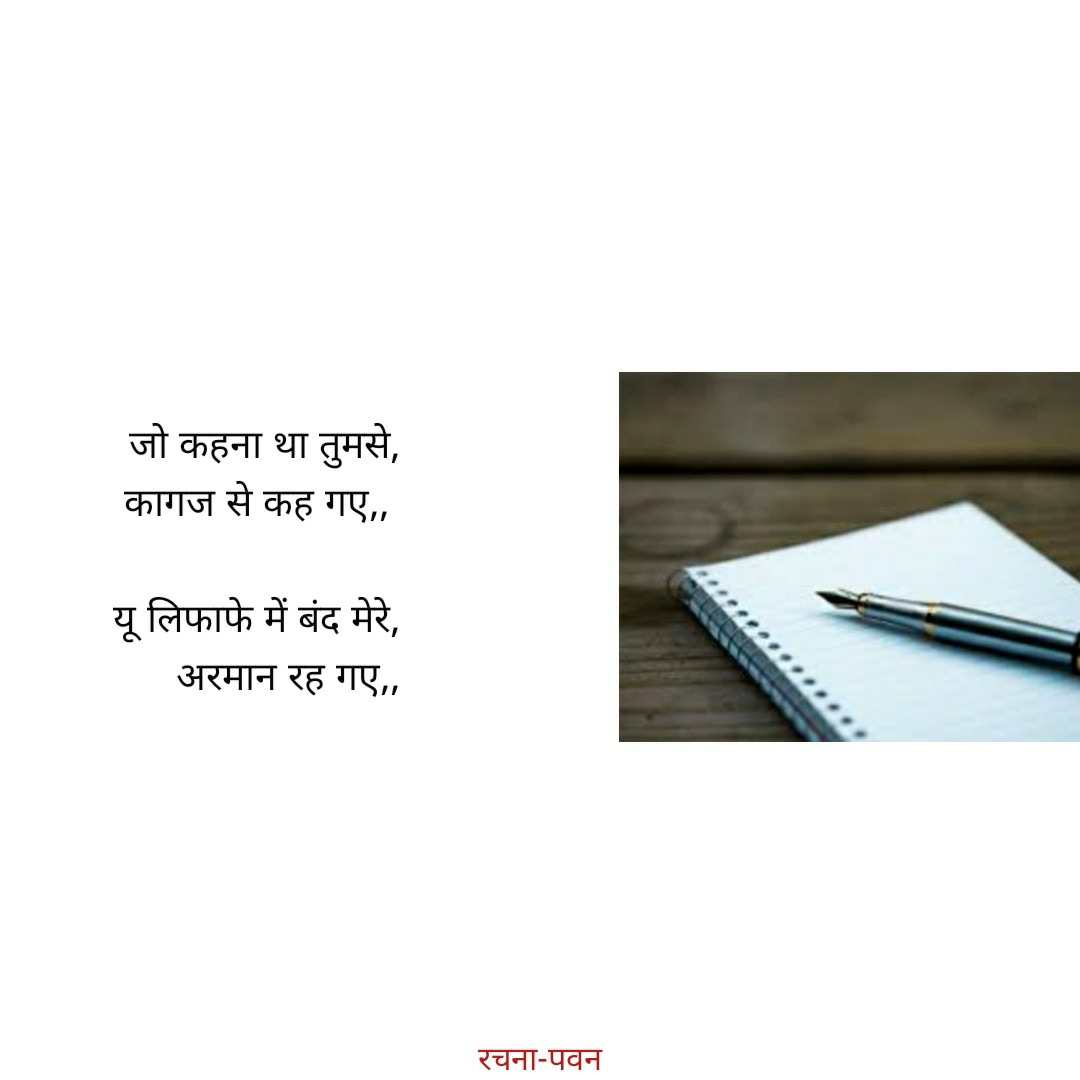 जो कहना था तुमसे,
कागज से कह गए,,
यू लिफाफे में बंद मेरे,
अरमान रह गए,,
रचना-पवन